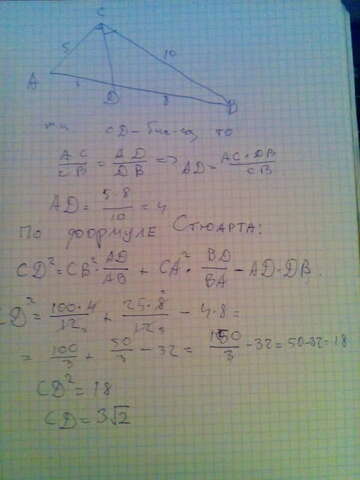 C
5
10
A
D
8
B
CD - бис-са, то
AC/CB = AD/DB => AD = AC·DB/CB
AD = 5·8/10 = 4
По формуле Стюарта:
CD² = CB²·AD/AB + CA²·BD/BA - AD·DB.
D² = 100·4/12₃ + 25·8²/12₃ - 4·8 =
= 100/3 + 50/3 - 32 = 150/3 - 32 = 50-32 = 18
CD² = 18
CD = 3√2